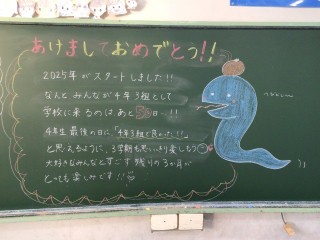 あけましておめでとう!!
2025年がスタートしました!!
なんと みんなが4年3組として
学校に来るのは、あと50日…!!
4年生最後の日に、「4年3組で良かった!!」
と思えるように、3学期も思いっきり楽しもう
大好きなみんなとすごす残りの3か月が
とっても楽しみです!!